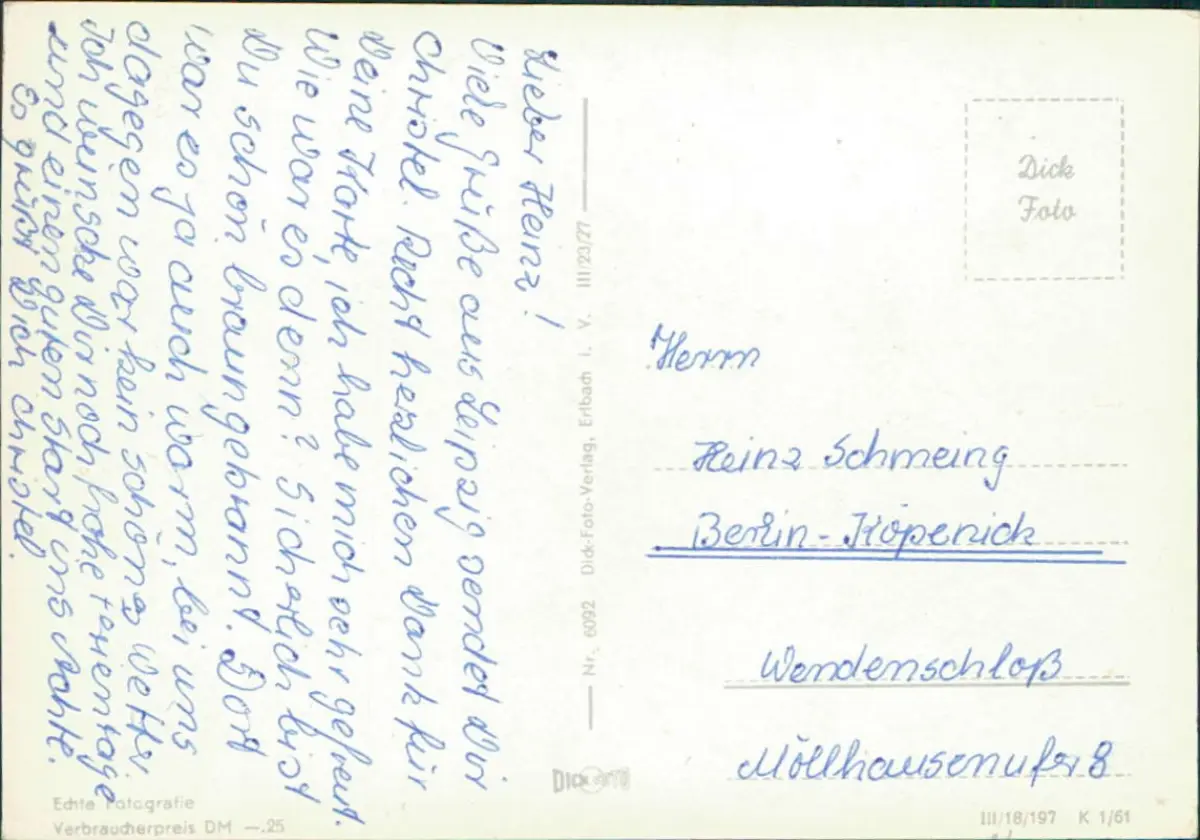 Lieber Heinz!
Viele Grüße aus Leipzig sendet Dir
Christel. Recht herzlichen Dank für
Deine Karte, ich habe mich sehr gefreut.
Wie war es denn? Sicherlich bist
Du schön braungebrannt. Dort
war es ja auch warm, bei uns
dagegen war kein schönes Wetter.
Ich wünsche Dir noch frohe Ferientage
und einen guten Start ins Achte.
Es grüßt Dich Christel.
Nr. 6092 Dick-Foto-Verlag, Erlbach i. V. III/23/27
DICK FOTO
Dick
Foto
Herrn
Heinz Schmeing
Berlin-Köpenick
Wendenschloß
Möllhausenufer 8
Echte Fotografie
Verbraucherpreis DM —.25
III/18/197 K 1/61